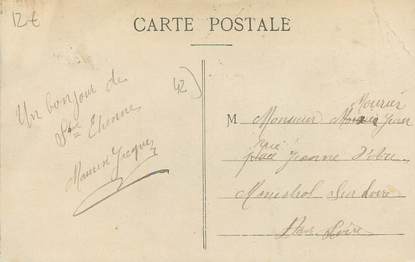 12€
CARTE POSTALE
42)
Un bonjour de
St Etienne
Maurice Jacques
Mourier
M Monsieur Jean
rue
place Jeanne d'Arc
Monistrol Sur Loire
Hte Loire